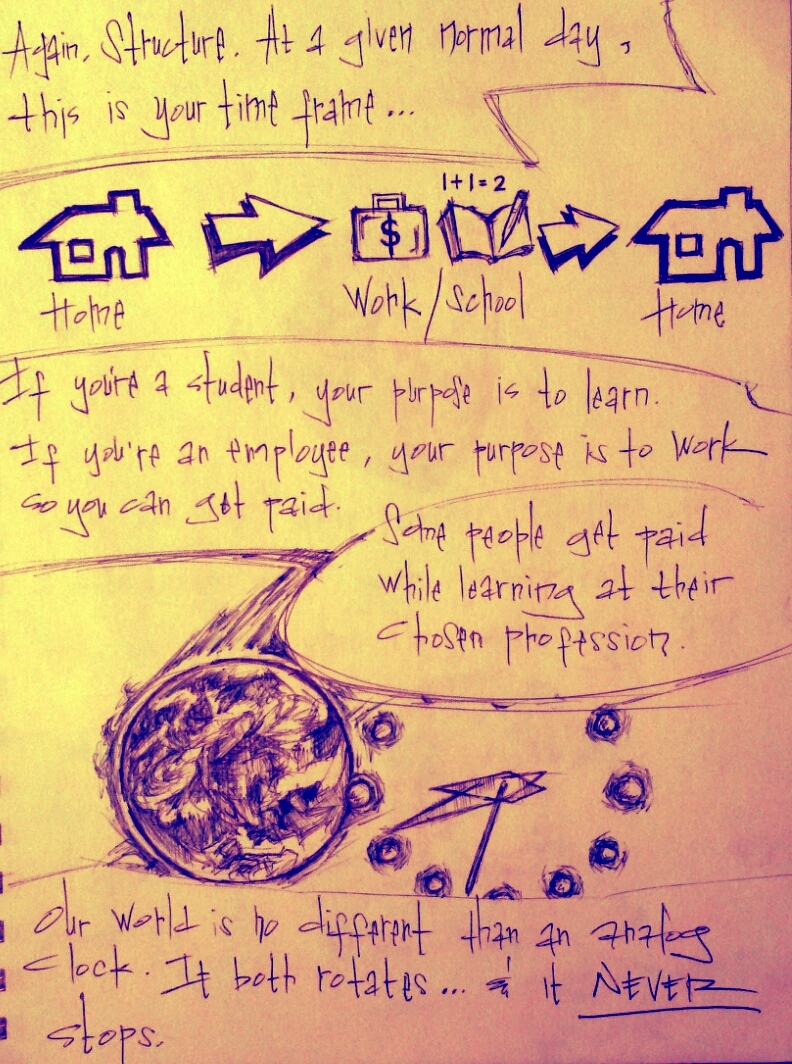 Again, Structure. At a given normal day,
this is your time frame...
1+1=2
$
Home
Work/School
Home
If you're a student, your purpose is to learn.
If you're an employee, your purpose is to work
so you can get paid.
Some people get paid
while learning at their
chosen profession.
Our world is no different than an analog
clock. It both rotates... & it NEVER
stops.